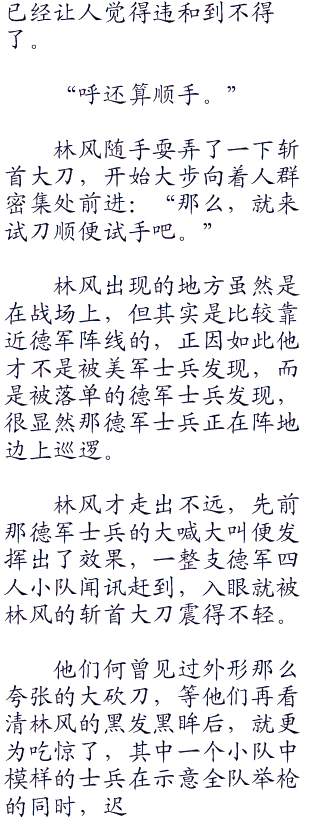 已经让人觉得违和到不得
了。
“呼还算顺手。”
林风随手耍弄了一下斩
首大刀，开始大步向着人群
密集处前进：“那么，就来
试刀顺便试手吧。”
林风出现的地方虽然是
在战场上，但其实是比较靠
近德军阵线的，正因如此他
才不是被美军士兵发现，而
是被落单的德军士兵发现，
很显然那德军士兵正在阵地
边上巡逻。
林风才走出不远，先前
那德军士兵的大喊大叫便发
挥出了效果，一整支德军四
人小队闻讯赶到，入眼就被
林风的斩首大刀震得不轻。
他们何曾见过外形那么
夸张的大砍刀，等他们再看
清林风的黑发黑眸后，就更
为吃惊了，其中一个小队中
模样的士兵在示意全队举枪
的同时，迟